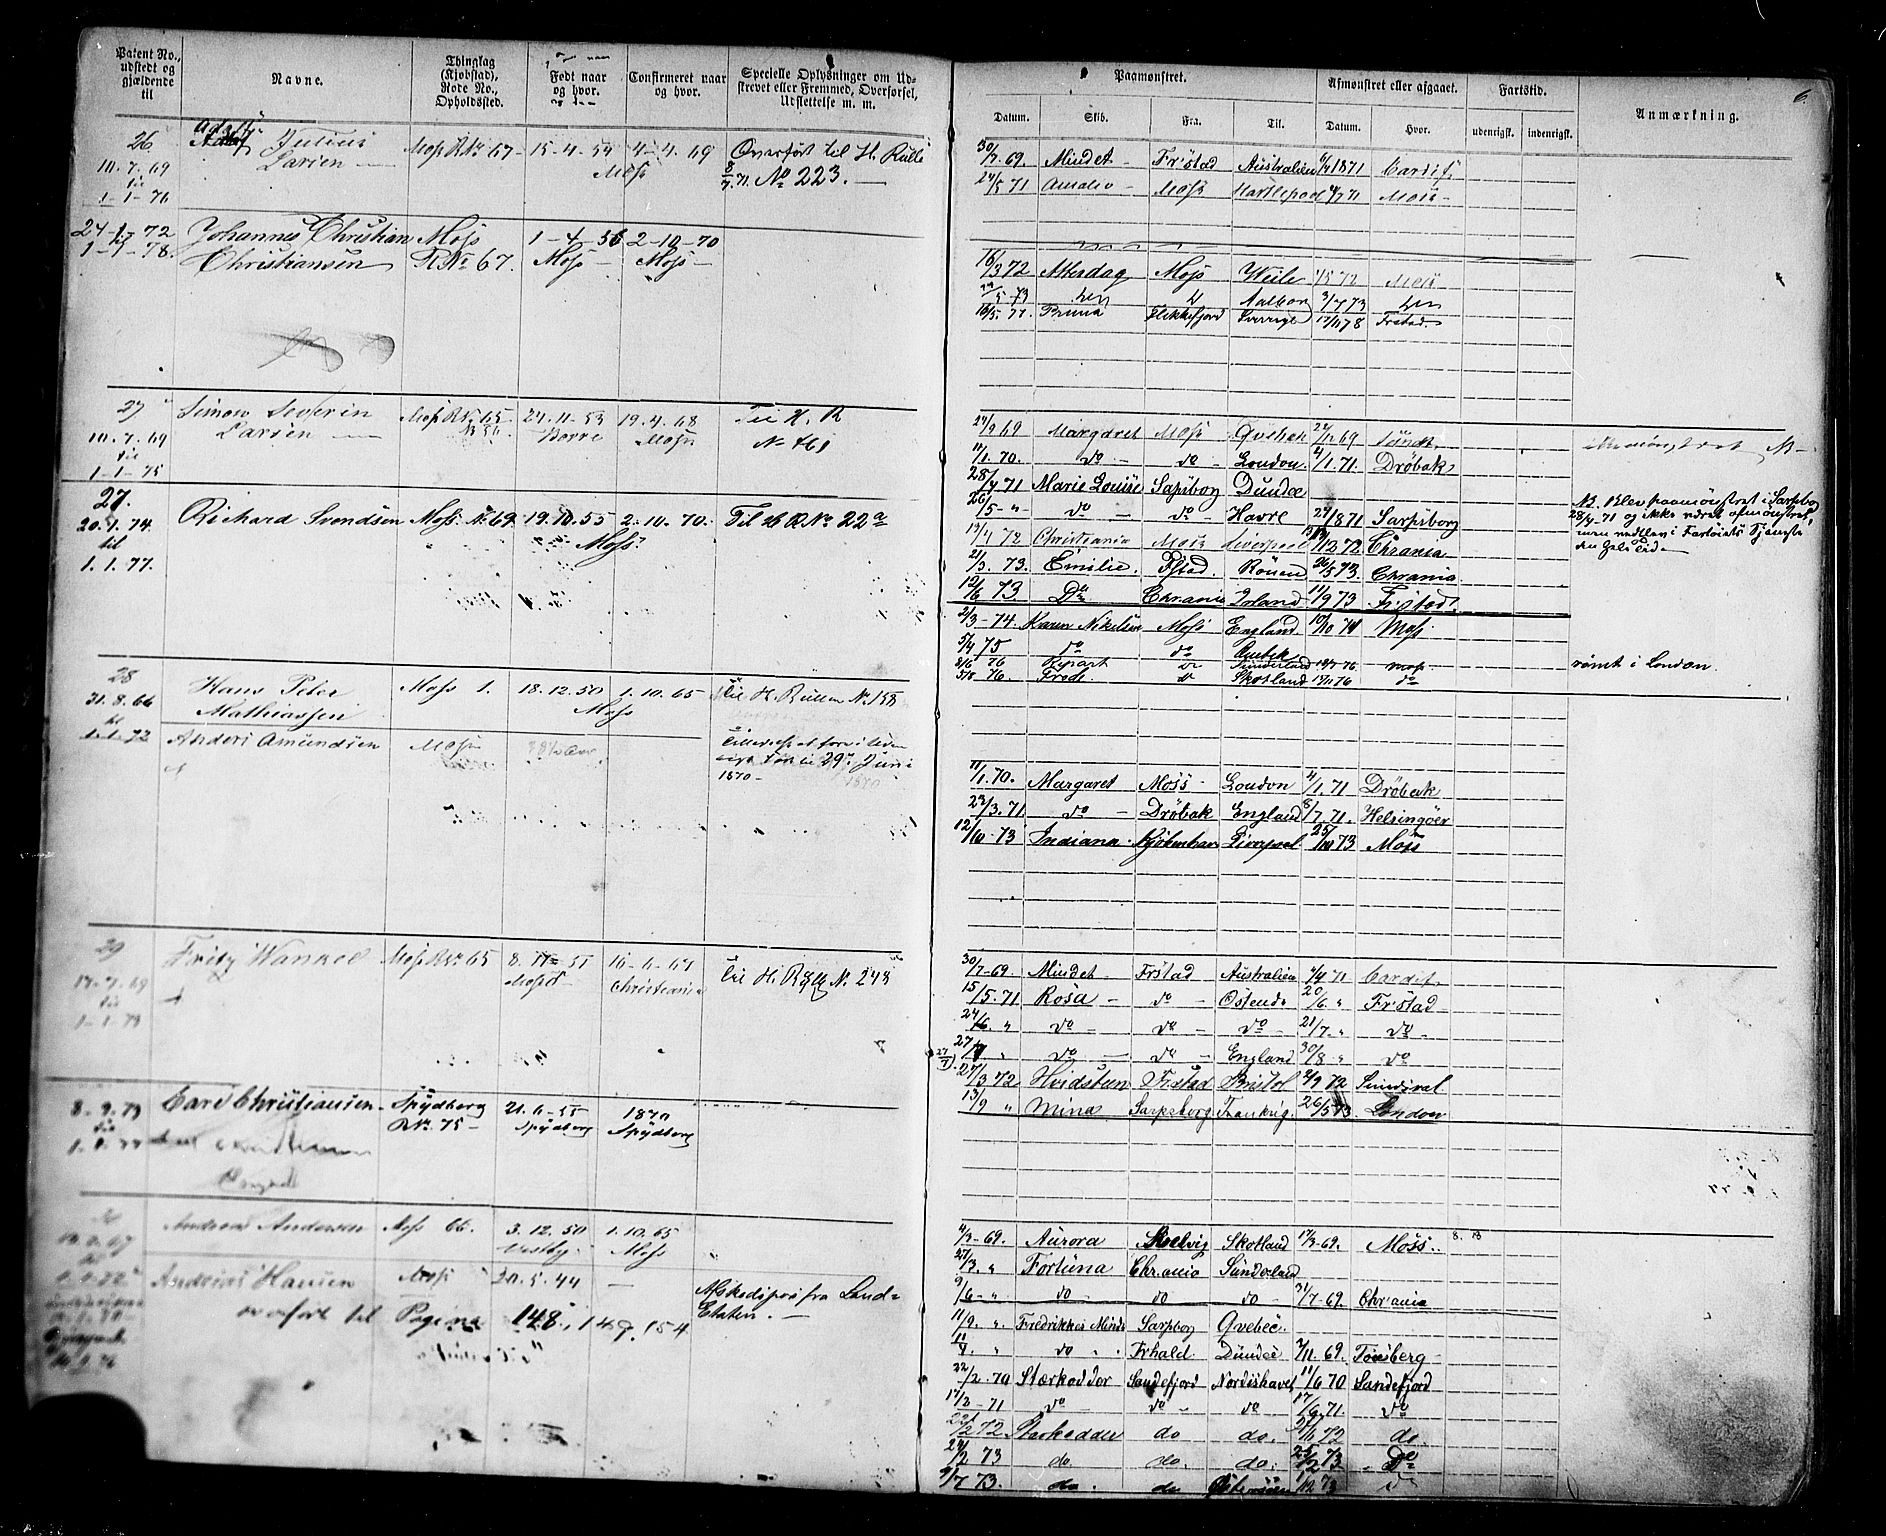 Patent No., udstedt og gjældende til
Navne.
Thinglag (Kjøbstad), Rode No., Opholdssted.
Født naar og hvor.
Confirmeret naar og hvor.
Specielle Oplysninger om Udskrevet eller Fremmed, Overførsel, Udslettelse m. m.
26
10.7.69
til
1-1-76
Adolf Julius
Larsen
Moss R No 67
15-4-54
4-4-69
Moss
Overført til H. Rulle
8/7.71. No 223.
24-1-72
til
1-1-78.
Johannes Christian
Christiansen
Moss
R No 67.
1-4-56
Moss
2-10-70
Moss
27
10.7.69
til
1-1-75
Simon Severin
Larsen
Moss R No 65
24.11.53
Borre
19.4.68
Moss
Til H. R
No 461
27.
20.1.74.
til
1.1.77.
Richard Svendsen
Moss. No 69.
19.10.55
2.10.70.
Moss.
Til H R No 22
28
31.8.66
til
1.1.72
Hans Peter
Mathiassen
Moss 1.
18.12.50
1.10.65
Moss
Til H. Rullen No 158
Anders Amundsen
Moss
29 Juni
1870
29
17-7-69
til
1-1-73
Fritz Wankel
Moss R No 65
8. 11 51
Moss
Christiania
Til H. Rulle No 248
8-9.73
til
Carl Christiansen
Spydberg
R No. 75
21.6-55
Spydberg
1870
Spydberg
Andreas Andersen
Moss 66.
3.12.50
Vestby.
1.10.65
Moss
Andreas Hansen
Moss
20.5.44
fra Land=
Etaten.
overført til Pagina 148, 149, 154
6.
Paamønstret.
Afmønstret eller afgaaet.
Fartstid.
Anmærkning.
Datum. Skib. Fra. Til. Datum. Hvor. udenrigsk. indenrigsk.
30/7.69. Mindet Fr.stad Australien 6/4 1871 Cardif.
24/5 71 Amelie Moss Hartlepool 4/7 71 Moss
16/3 72 Atterdag Moss Veile 1/5 72 Moss
5-73 Aalborg 3/7 73
16/5 77. Bruna Flekkefjord Sverrige 17/11 78 Frstad.
24/9 69 Margaret Moss Qvebek 22/11 69
11/1.70. do do London 4/1.71. Drøbak
28/4 71 Marie Louise Sapsborg Dundee
26/5-" do do Havre 24/8 71 Sarpsborg
NB. Blev paamønstret i Sarpsborg
28/4-71 og ikke været afmønstret,
men vedblev i Fartøiets Tjeneste
den hele Tid
13/4 72 Christiania Moss Liverpool 19/12 72 Chrania
2/3. 73. Emilie. Fstad. Rouen 26/5 73. Chrania
12/6 73 Do Chrania Irland 11/9 73 Fr.stad.
2/3-74. Karen Nikelsen Moss England. 10/10 74 Moss
5/4 75 do do Qvebek
76 Sunderland 76 Moss
rømt i London.
5/8 76. Frode. Skotland 76 do
11/1.70. Margaret Moss London 4/1.71 Drøbak
23/3.71. do Drøbak England 8/7.71. Helsingöer
12/10-73 Indiana Kjöbenhavn Liverpool 25/10 73 Moss
30/7-69. Mindet Frstad Australien 6/4 71 Cardif.
15/5.71 Rosa do Ostende 20/6. " Fr.stad
24/6. " do do do 21/7. " do
27/7. " do do England 30/8 " do
27/3 72 Hvidsteen Frstad Bristol 2/9 72 Sundsval
13/9 " Mina Sarpsborg Frankrig. 26/5 73 London
4/3-69. Aurora Skotland 17/3-69. Moss.
27/3. " Fortuna Chrania Sunderland
9/6-" do do do 31/7-69. Chrania
11/9. " Fredrikkes Minde Sarpborg Qvebec.
" do Frhald. Dundee 7/11.69. Tønsberg
22/2-70 Stærkodder Sandefjord Nordishavet 11/6 70 Sandefjord
17/2-71 do do do 17/6.71. do
22/2 72 Starkodder do do. 27/6 72 do.
24/2 73 do do. do. 73 Do
9/7 73. do. do 73 do